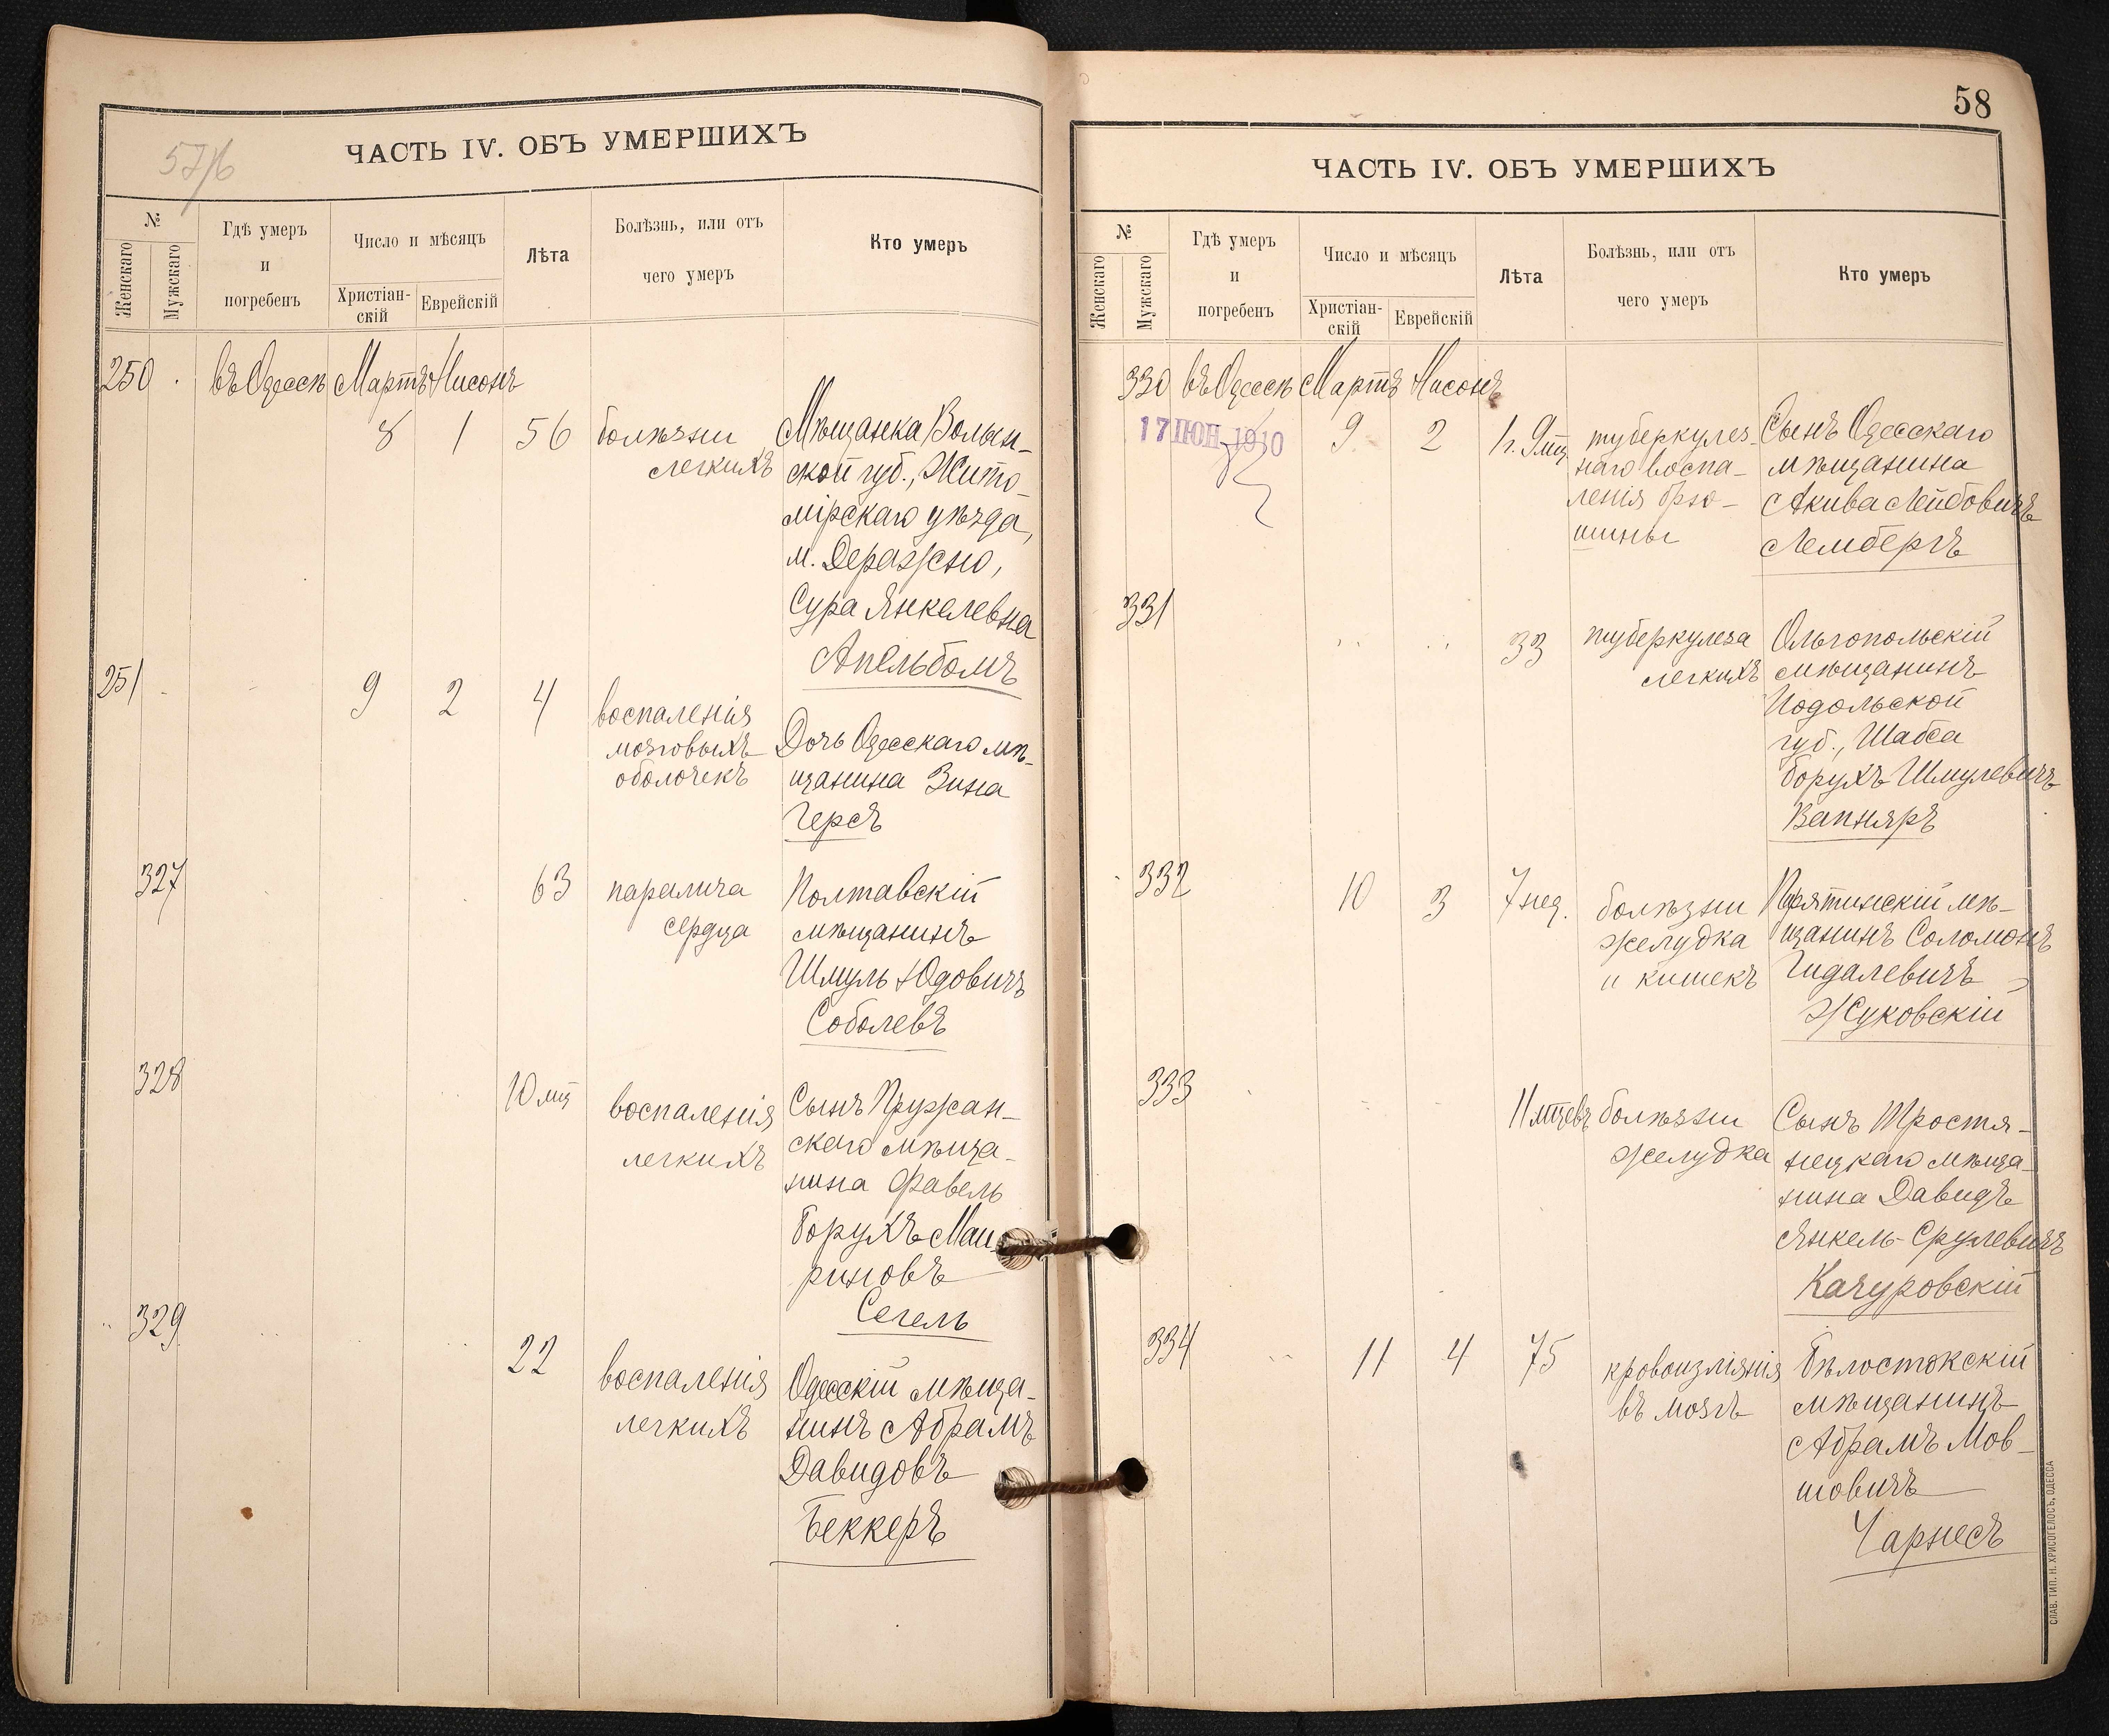 57/б
ЧАСТЬ IV. ОБЪ УМЕРШИХЪ
№
Женскаго
Мужскаго
Гдѣ умеръ
и
погребенъ
Число и мѣсяцъ
Христіан-
скій
Еврейскій
Лѣта
Болѣзнь, или отъ
чего умеръ
Кто умеръ
250 въ Одессѣ Мартъ Нисонъ
8 1 56 болѣзни легкихъ
Мѣщанка Волын-
ской губ., Жито-
мірскаго уѣзда,
м. Деражню,
Сура Янкелевна
Апельбомъ
251 9 2 4
воспаленія
мозговыхъ
оболочекъ
Дочь Одесскаго мѣ-
щанина Зина
Герсъ
327 63
паралича
сердца
Полтавскій
мѣщанинъ
Шмуль Юдовичъ
Соболевъ
328 10 мц
воспаленія
легкихъ
Сынъ Пружан-
скаго мѣща-
нина Фавель
Борухъ Маи-
риновъ
Сегель
329 22
воспаленія
легкихъ
Одесскій мѣща-
нинъ Абрамъ
Давидовъ
Беккеръ
58
ЧАСТЬ IV. ОБЪ УМЕРШИХЪ
№
Женскаго
Мужскаго
Гдѣ умеръ
и
погребенъ
Число и мѣсяцъ
Христіан-
скій
Еврейскій
Лѣта
Болѣзнь, или отъ
чего умеръ
Кто умеръ
330 въ Одессѣ Мартъ Нисонъ
17 ІЮН 1910
9 2 1 г. 9 мц
туберкулез-
наго воспа-
ленія брю-
шины
Сынъ Одесскаго
мѣщанина
Акива Лейбовичъ
Лембергъ
331 33
туберкулеза
легкихъ
Ольгопольскій
мѣщанинъ
Подольской
губ., Шабса
Борухъ Шмулевичъ
Вапняръ
332 10 3 7 нед.
болѣзни
желудка
и кишекъ
Пирятинскій мѣ-
щанинъ Соломонъ
Гидалевичъ
Жуковскій
333 11 мцевъ
болѣзни
желудка
Сынъ Тростя-
нецкаго мѣща-
нина Давидъ
Янкель-Срулевичъ
Качуровскій
334 11 4 75
кровоизліянія
въ мозгъ
Бѣлостокскій
мѣщанинъ
Абрамъ Мов-
шовичъ
Чарнесъ
СЛАВ. ТИП. Н. ХРИСОГЕЛОСЪ, ОДЕССА